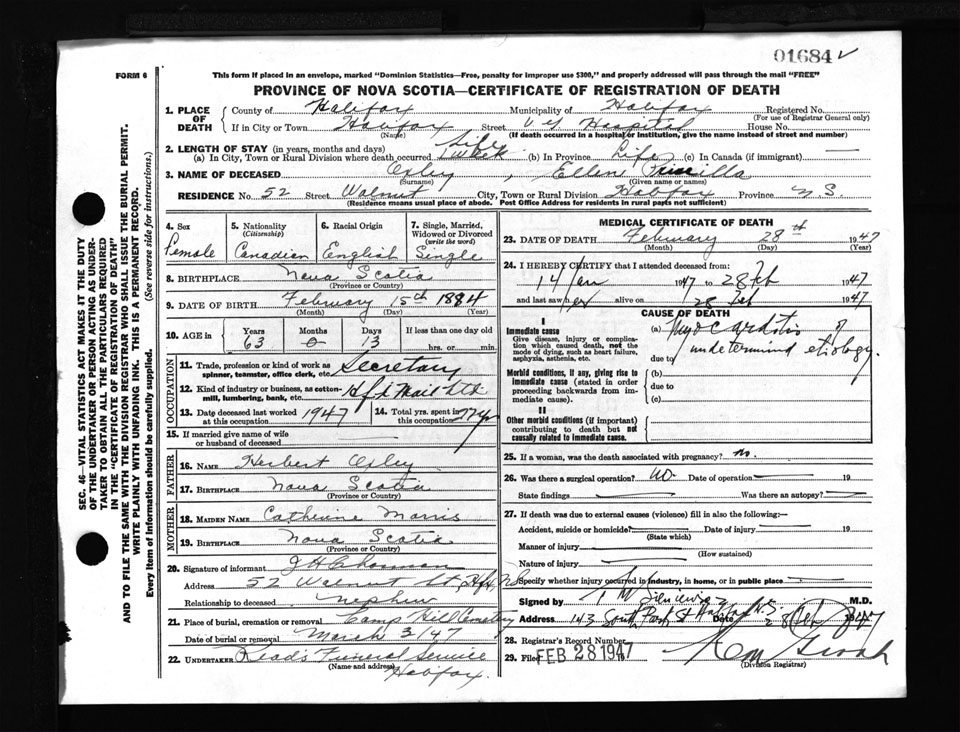 01684 ✓
FORM 6
This form if placed in an envelope, marked "Dominion Statistics—Free, penalty for improper use $300," and properly addressed will pass through the mail "FREE"
PROVINCE OF NOVA SCOTIA—CERTIFICATE OF REGISTRATION OF DEATH
SEC. 46—VITAL STATISTICS ACT MAKES IT THE DUTY
OF THE UNDERTAKER OR PERSON ACTING AS UNDER-
TAKER TO OBTAIN ALL THE PARTICULARS REQUIRED
IN THE "CERTIFICATE OF REGISTRATION OF DEATH"
AND TO FILE THE SAME WITH THE DIVISION REGISTRAR WHO SHALL ISSUE THE BURIAL PERMIT.
WRITE PLAINLY WITH UNFADING INK. THIS IS A PERMANENT RECORD.
Every item of Information should be carefully supplied. (See reverse side for instructions.)
1. PLACE OF DEATH
County of Halifax Municipality of Halifax Registered No.
(For use of Registrar General only)
If in City or Town Halifax Street V G Hospital House No.
(Name) (If death occurred in a hospital or institution, give the name instead of street and number)
2. LENGTH OF STAY (in years, months and days) Life
(a) In City, Town or Rural Division where death occurred 1 week (b) In Province Life (c) In Canada (if immigrant) —
3. NAME OF DECEASED Oxley, Ellen Priscilla
(Surname) (Given name or names)
RESIDENCE No. 52 Street Walnut City, Town or Rural Division Halifax Province N S
(Residence means usual place of abode. Post Office Address for residents in rural parts not sufficient)
4. Sex
Female
5. Nationality
(Citizenship)
Canadian
6. Racial Origin
English
7. Single, Married,
Widowed or Divorced
(write the word)
Single
8. BIRTHPLACE Nova Scotia
(Province or Country)
9. DATE OF BIRTH February 15th 1884
(Month) (Day) (Year)
10. AGE in
Years 63
Months 0
Days 13
If less than one day old
hrs. or min.
OCCUPATION
11. Trade, profession or kind of work as
spinner, teamster, office clerk, etc. Secretary
12. Kind of industry or business, as cotton-
mill, lumbering, bank, etc.
13. Date deceased last worked
at this occupation 1947
14. Total yrs. spent in
this occupation
15. If married give name of wife
or husband of deceased —
FATHER
16. NAME Herbert Oxley
17. BIRTHPLACE Nova Scotia
(Province or Country)
MOTHER
18. MAIDEN NAME Catherine Morris
19. BIRTHPLACE Nova Scotia
(Province or Country)
20. Signature of informant
Address 52 Walnut St, Hfx, N.S
Relationship to deceased nephew
21. Place of burial, cremation or removal Camp Hill Cemetery
Date of burial or removal March 3/47
22. UNDERTAKER Read's Funeral Service
(Name and address)
Halifax.
MEDICAL CERTIFICATE OF DEATH
23. DATE OF DEATH February 28th 1947
(Month) (Day) (Year)
24. I HEREBY CERTIFY that I attended deceased from:
14 Jan 1947 to 28 Feb 1947
and last saw her alive on 28 Feb 1947
CAUSE OF DEATH
I
Immediate cause
Give disease, injury or complica-
tion which caused death, not the
mode of dying, such as heart failure,
asphyxia, asthenia, etc.
(a) Myocarditis of
due to undetermind etiology.
Morbid conditions, if any, giving rise to
immediate cause (stated in order
proceeding backwards from im-
mediate cause).
(b)
due to
(c)
II
Other morbid conditions (if important)
contributing to death but not
causally related to immediate cause.
25. If a woman, was the death associated with pregnancy? no.
26. Was there a surgical operation? No. Date of operation — 19
State findings — Was there an autopsy? —
27. If death was due to external causes (violence) fill in also the following:—
Accident, suicide or homicide? — Date of injury — 19
(State which)
Manner of injury —
(How sustained)
Nature of injury —
Specify whether injury occurred in industry, in home, or in public place —
Signed by M.D.
Address 143 South Park St Halifax N.S. Date 28 Feb 1947
28. Registrar's Record Number
29. Filed FEB 28 1947
(Division Registrar)